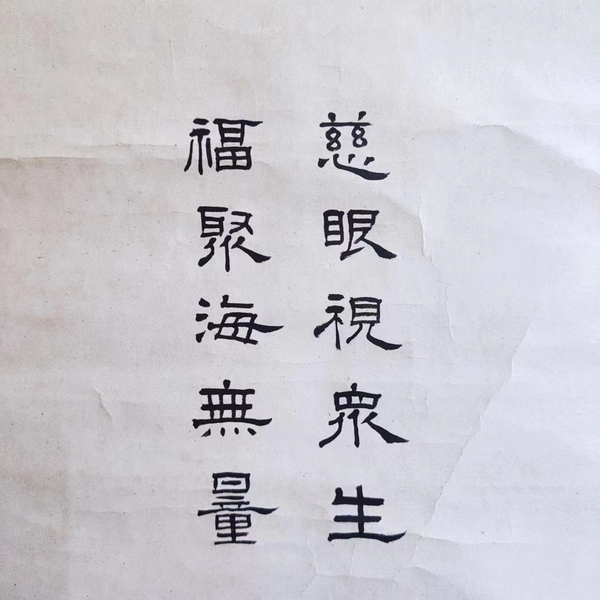 慈眼視衆生
福聚海無量